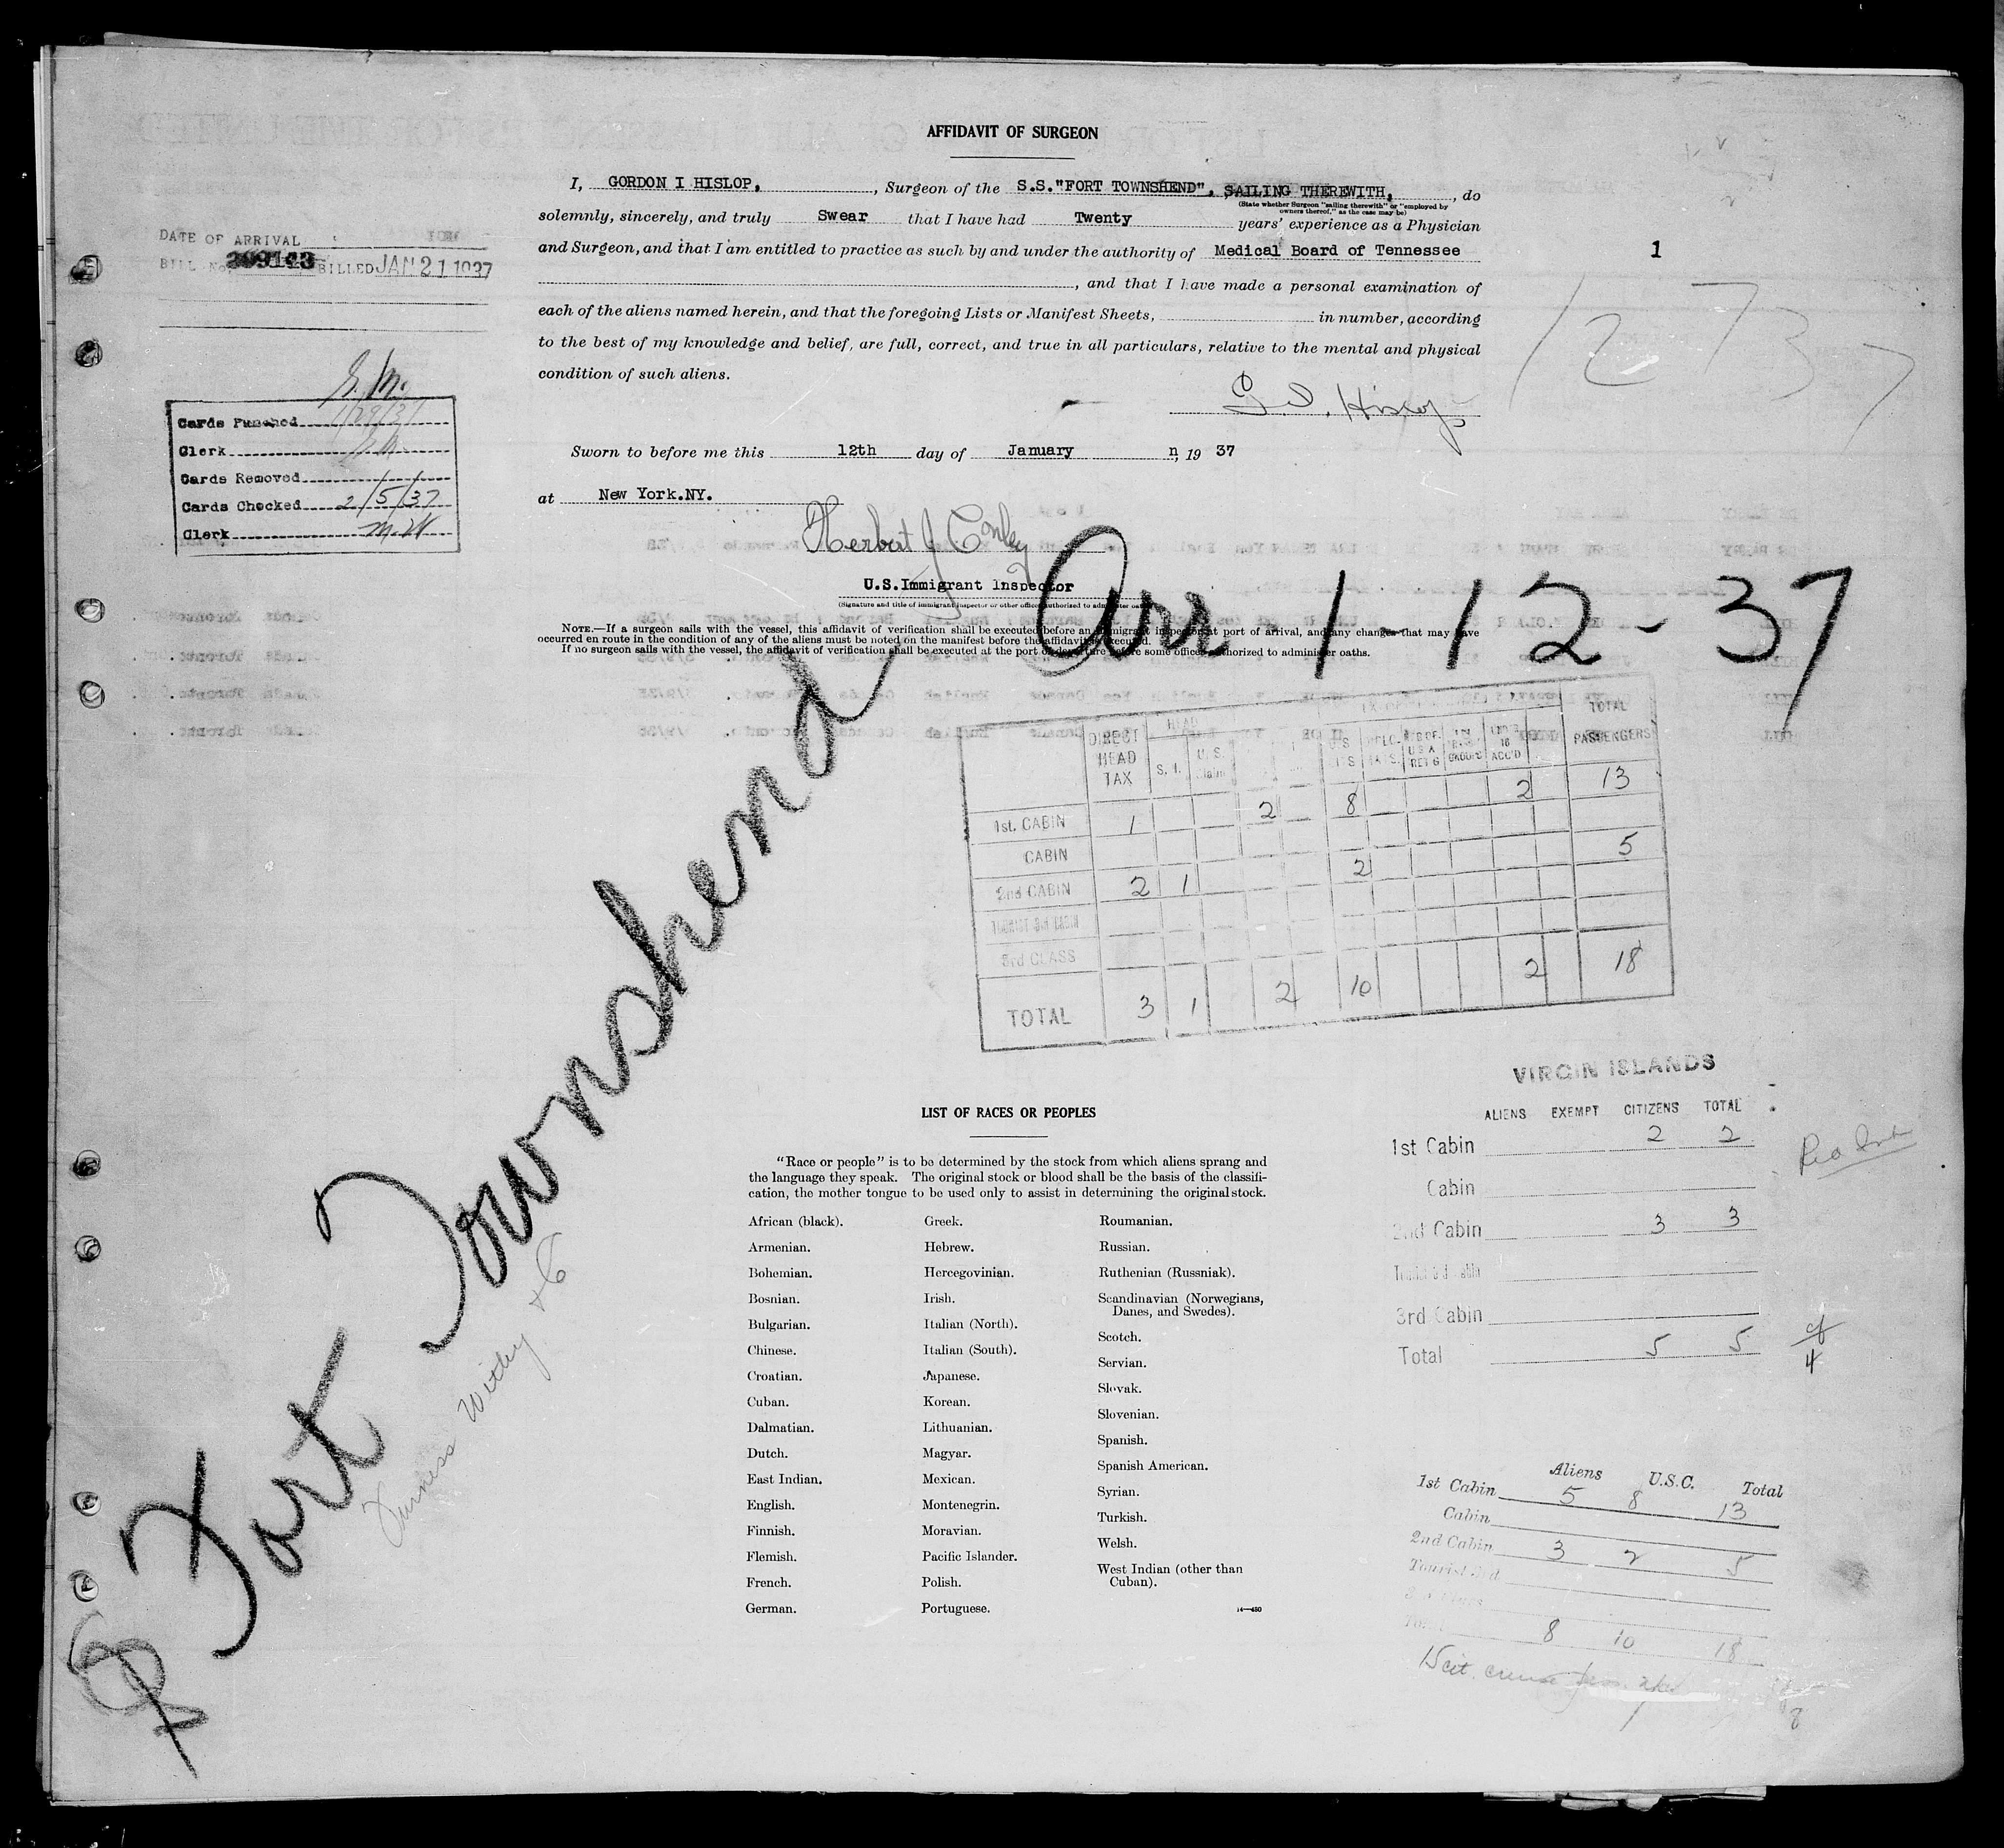 AFFIDAVIT OF SURGEON
I, GORDON I HISLOP, , Surgeon of the S.S."FORT TOWNSHEND", SAILING THEREWITH, , do
(State whether Surgeon "sailing therewith" or "employed by
owners thereof," as the case may be)
solemnly, sincerely, and truly Swear that I have had Twenty years' experience as a Physician
and Surgeon, and that I am entitled to practice as such by and under the authority of Medical Board of Tennessee
, and that I have made a personal examination of
each of the aliens named herein, and that the foregoing Lists or Manifest Sheets, in number, according
to the best of my knowledge and belief, are full, correct, and true in all particulars, relative to the mental and physical
condition of such aliens.
G I. Hislop
Sworn to before me this 12th day of January n, 19 37
at New York.NY.
Herbert J Conley
U.S.Immigrant Inspector
(Signature and title of immigrant inspector or other officer authorized to administer oaths)
NOTE.—If a surgeon sails with the vessel, this affidavit of verification shall be executed before an immigrant inspector at port of arrival, and any changes that may have
occurred en route in the condition of any of the aliens must be noted on the manifest before the affidavit is executed.
If no surgeon sails with the vessel, the affidavit of verification shall be executed at the port of departure before some officer authorized to administer oaths.
DATE OF ARRIVAL
BILL No. BILLED JAN 21 1937
Cards Punched
Clerk
Cards Removed
Cards Checked 2/5/37
Clerk M.W
1
12 37
Arr 1-12-37
Fort Townshend
Furness Withy & Co
DIRECT HEAD TAX HEAD S.I. U.S. TOTAL PASSENGERS
1st. CABIN 1 2 8 2 13
CABIN
2nd CABIN 2 1 2 5
TOURIST 3rd CABIN
3rd CLASS
TOTAL 3 1 2 10 2 18
VIRGIN ISLANDS
ALIENS EXEMPT CITIZENS TOTAL
1st Cabin 2 2
Cabin
2nd Cabin 3 3
Tourist 3rd Cabin
3rd Cabin
Total 5 5
Aliens U.S.C. Total
1st Cabin 5 8 13
Cabin
2nd Cabin 3 2 5
Tourist 3rd
Total 8 10 18
LIST OF RACES OR PEOPLES
"Race or people" is to be determined by the stock from which aliens sprang and
the language they speak. The original stock or blood shall be the basis of the classifi-
cation, the mother tongue to be used only to assist in determining the original stock.
African (black).
Armenian.
Bohemian.
Bosnian.
Bulgarian.
Chinese.
Croatian.
Cuban.
Dalmatian.
Dutch.
East Indian.
English.
Finnish.
Flemish.
French.
German.
Greek.
Hebrew.
Hercegovinian.
Irish.
Italian (North).
Italian (South).
Japanese.
Korean.
Lithuanian.
Magyar.
Mexican.
Montenegrin.
Moravian.
Pacific Islander.
Polish.
Portuguese.
Roumanian.
Russian.
Ruthenian (Russniak).
Scandinavian (Norwegians,
Danes, and Swedes).
Scotch.
Servian.
Slovak.
Slovenian.
Spanish.
Spanish American.
Syrian.
Turkish.
Welsh.
West Indian (other than
Cuban).
14—480